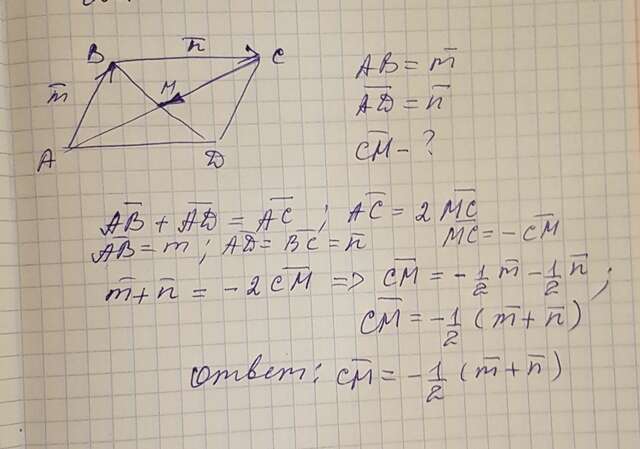 B n̅ C
m̅ M
A D
AB = m̅
A̅D̅ = n̅
C̅M̅ - ?
A̅B̅ + A̅D̅ = A̅C̅ ; A̅C̅ = 2 M̅C̅
AB = m ; A̅D̅ = B̅C̅ = n̅ MC = - C̅M̅
m̅ + n̅ = - 2 C̅M̅ => C̅M̅ = - 1/2 m̅ - 1/2 n̅ ;
C̅M̅ = - 1/2 ( m̅ + n̅ )
ответ : C̅M̅ = - 1/2 ( m̅ + n̅ )